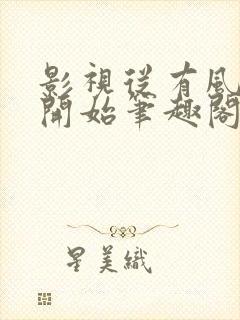 影視從有風
開始筆趣閣
星美織